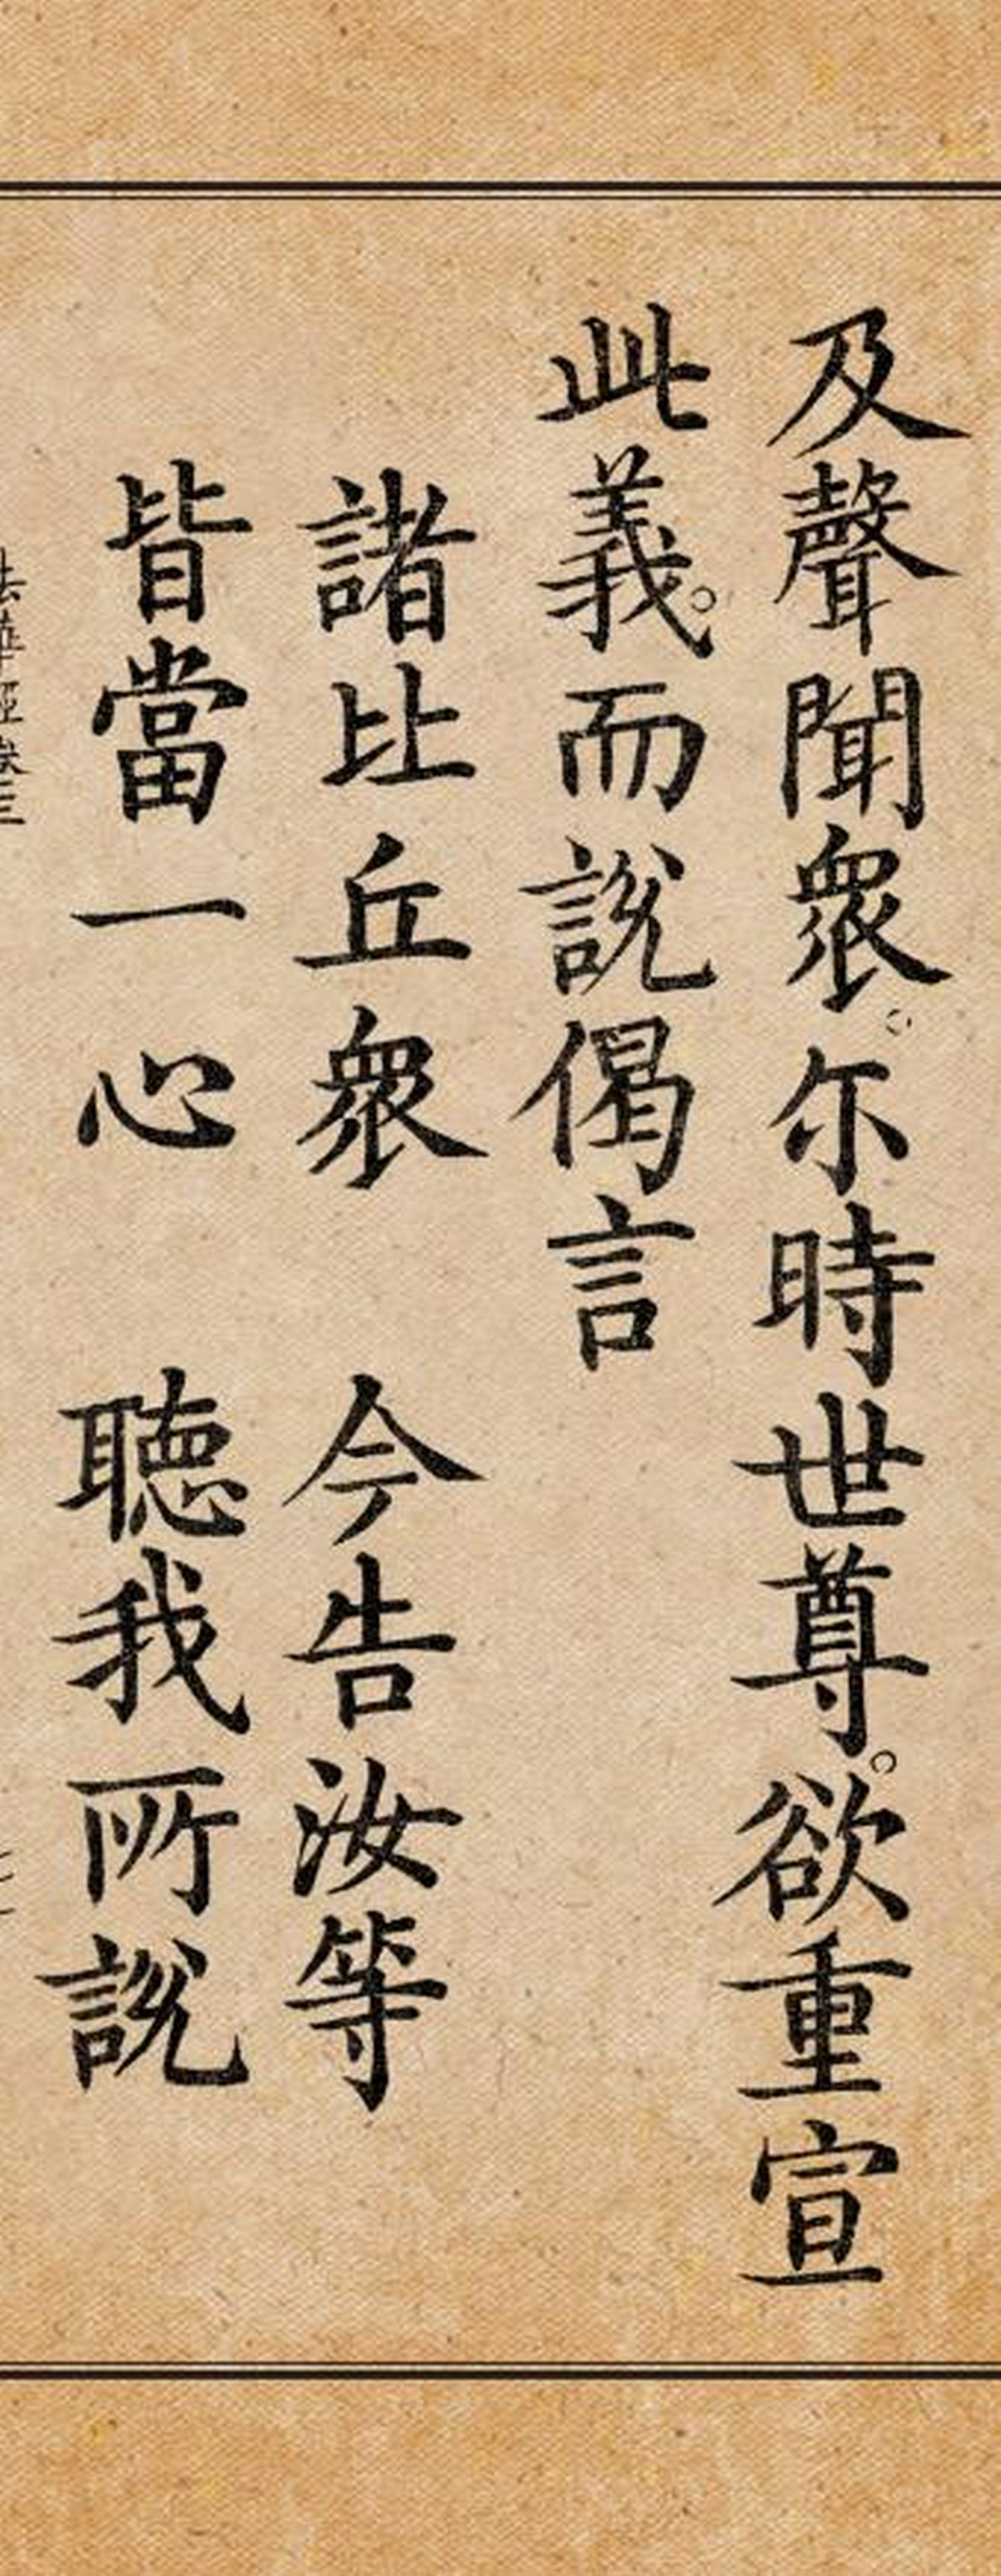 及聲聞衆。尔時世尊。欲重宣
此義。而說偈言
諸比丘衆　今告汝等
皆當一心　聽我所說
法華經卷三